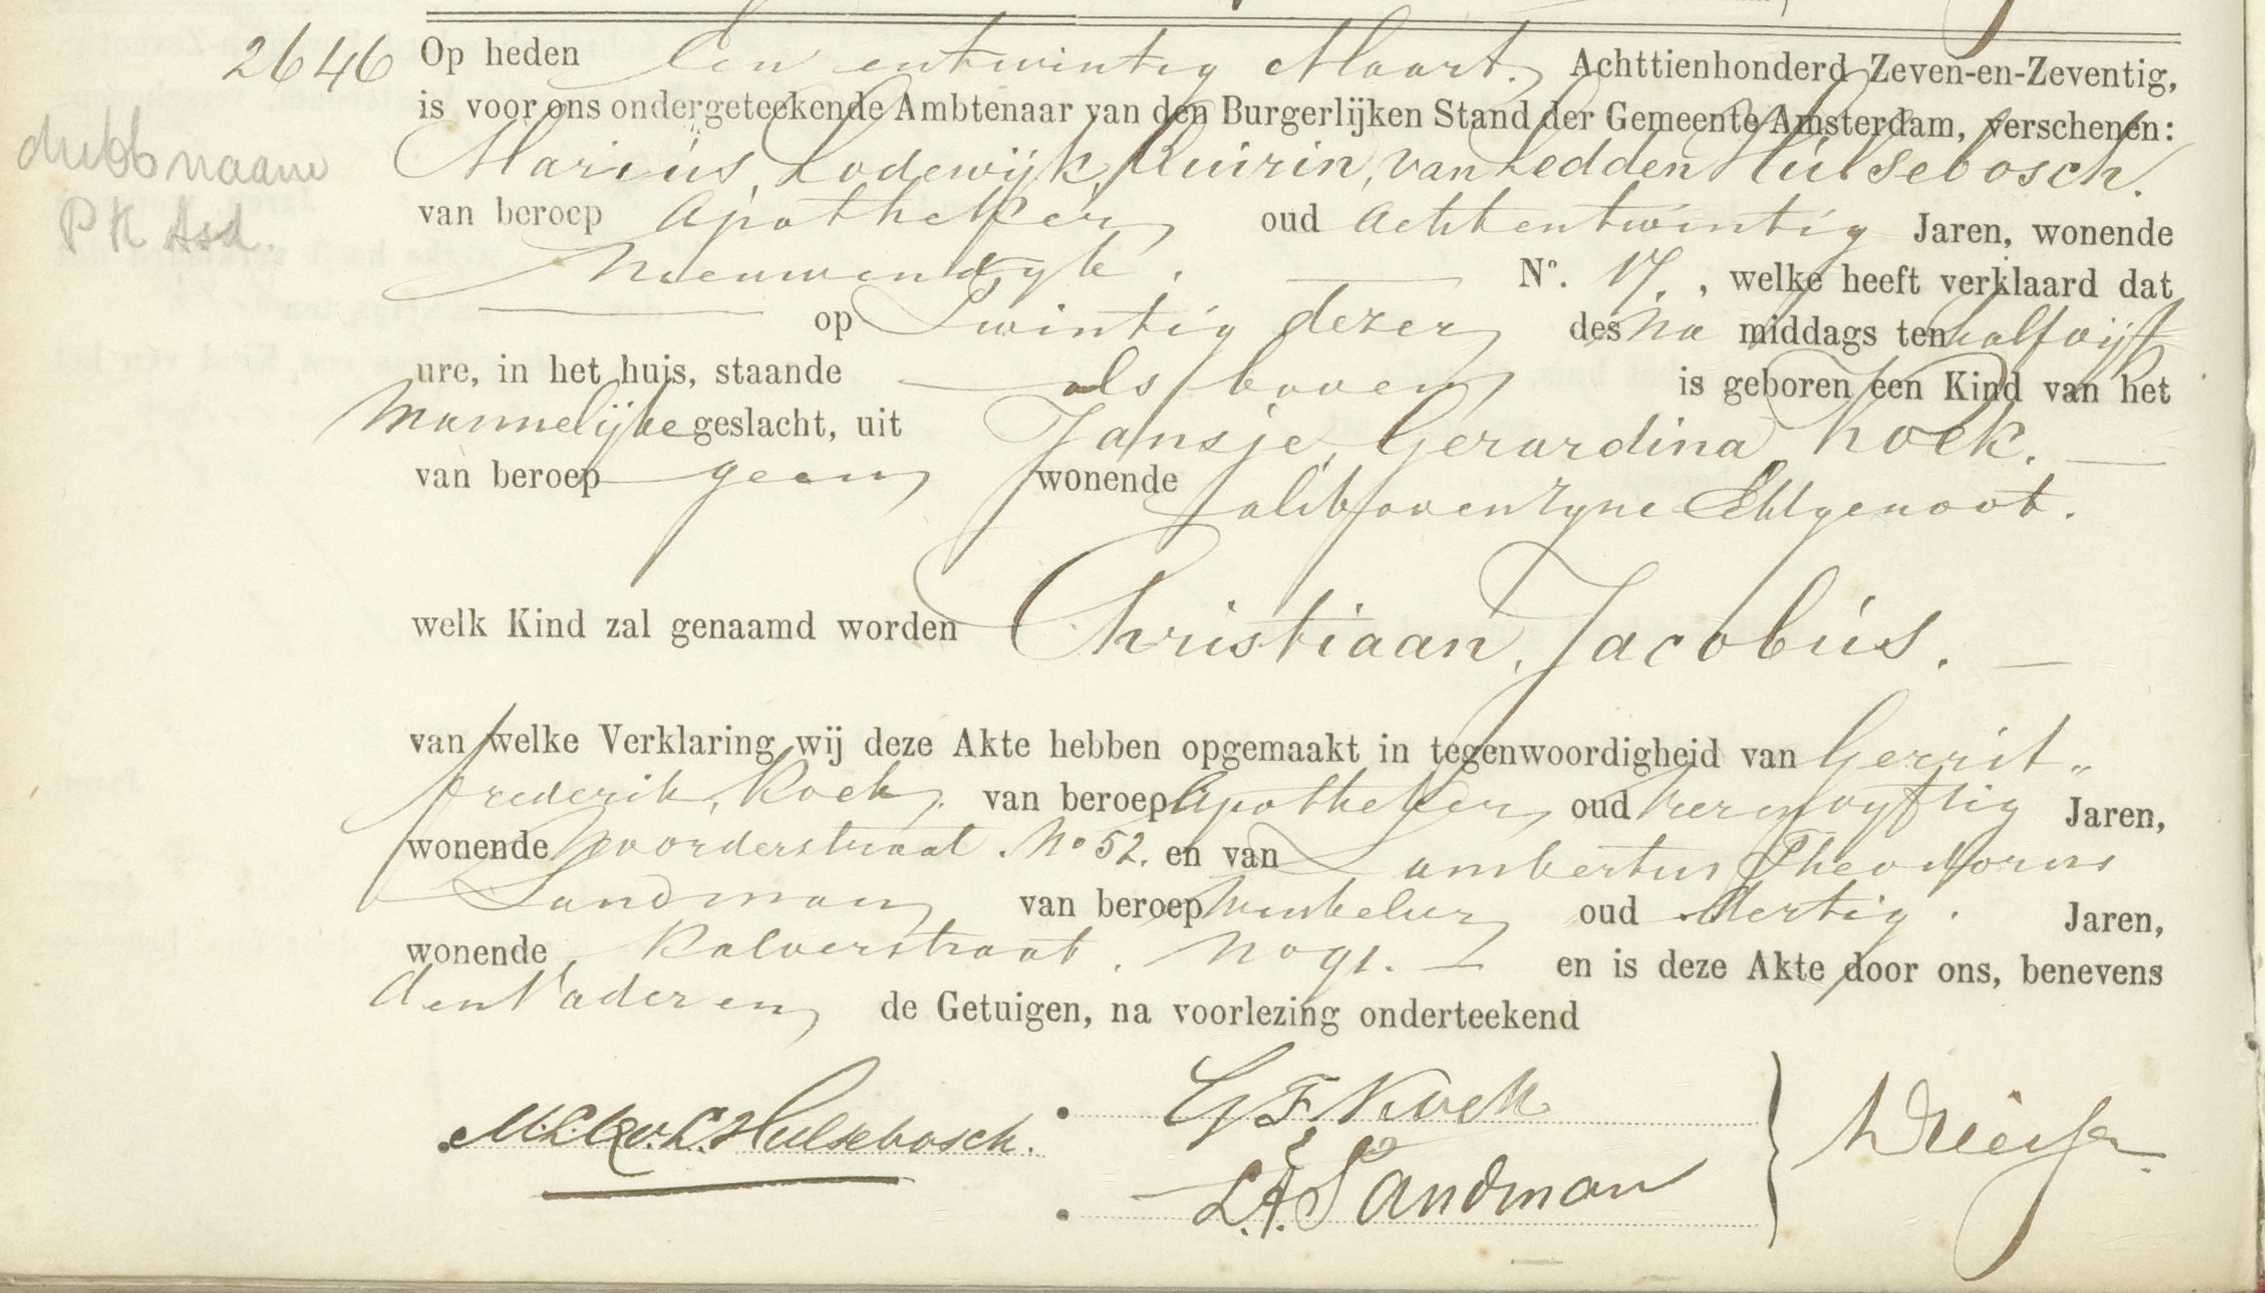 2646 Op heden Een entwintig Maart. Achttienhonderd Zeven-en-Zeventig,
is voor ons ondergeteekende Ambtenaar van den Burgerlijken Stand der Gemeente Amsterdam, verschenen:
dubb naam
PK Asd.
Marius, Lodewijk, Quirin, van Ledden Hulsebosch.
van beroep Apotheker oud Achtentwintig Jaren, wonende
Nieuwendyk. No. 17., welke heeft verklaard dat
op Twintig dezer des Na middags ten half vijf
ure, in het huis, staande als boven is geboren een Kind van het
Mannelijke geslacht, uit Jansje, Gerardina Koek.
van beroep geen wonende als boven zyne Echtgenoot.
welk Kind zal genaamd worden Christiaan, Jacobus.
van welke Verklaring wij deze Akte hebben opgemaakt in tegenwoordigheid van Gerrit
Frederik, Koek, van beroep Apotheker oud vyftig Jaren,
wonende Noorderstraat. No 52. en van Lambertus Theodorus
Sandman van beroep Winkelier oud dertig. Jaren,
wonende Kalverstraat. No 91. en is deze Akte door ons, benevens
den Vader en de Getuigen, na voorlezing onderteekend
M.L.Q.v.L. Hulsebosch.
G F Koek
L.T. Sandman